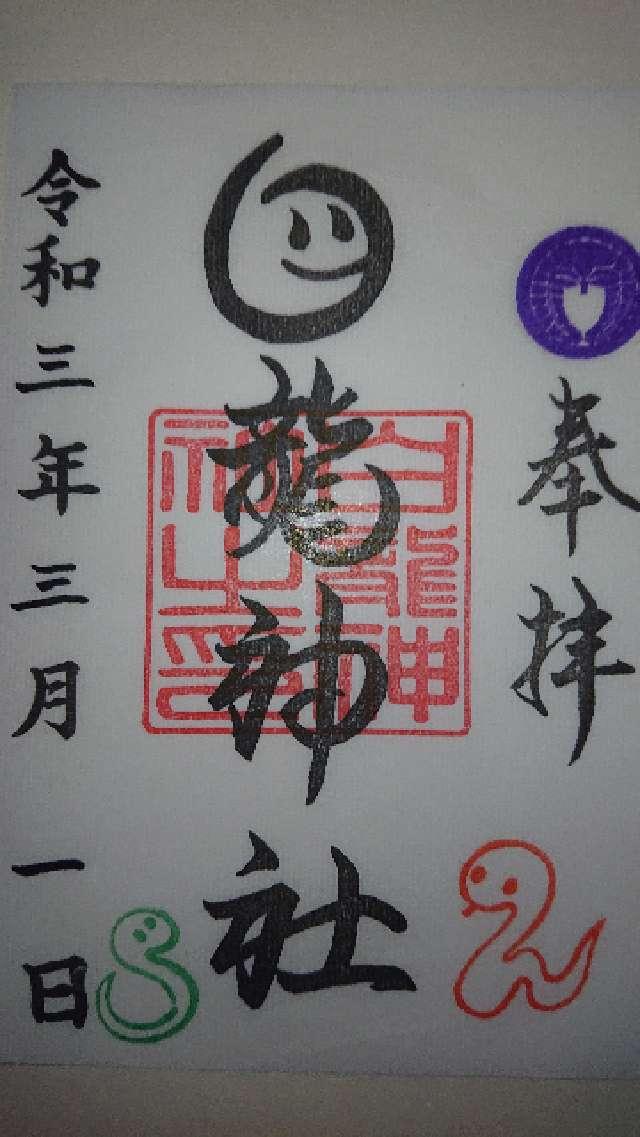 奉拝
白龍神社
白龍神
社之印
令和三年三月一日